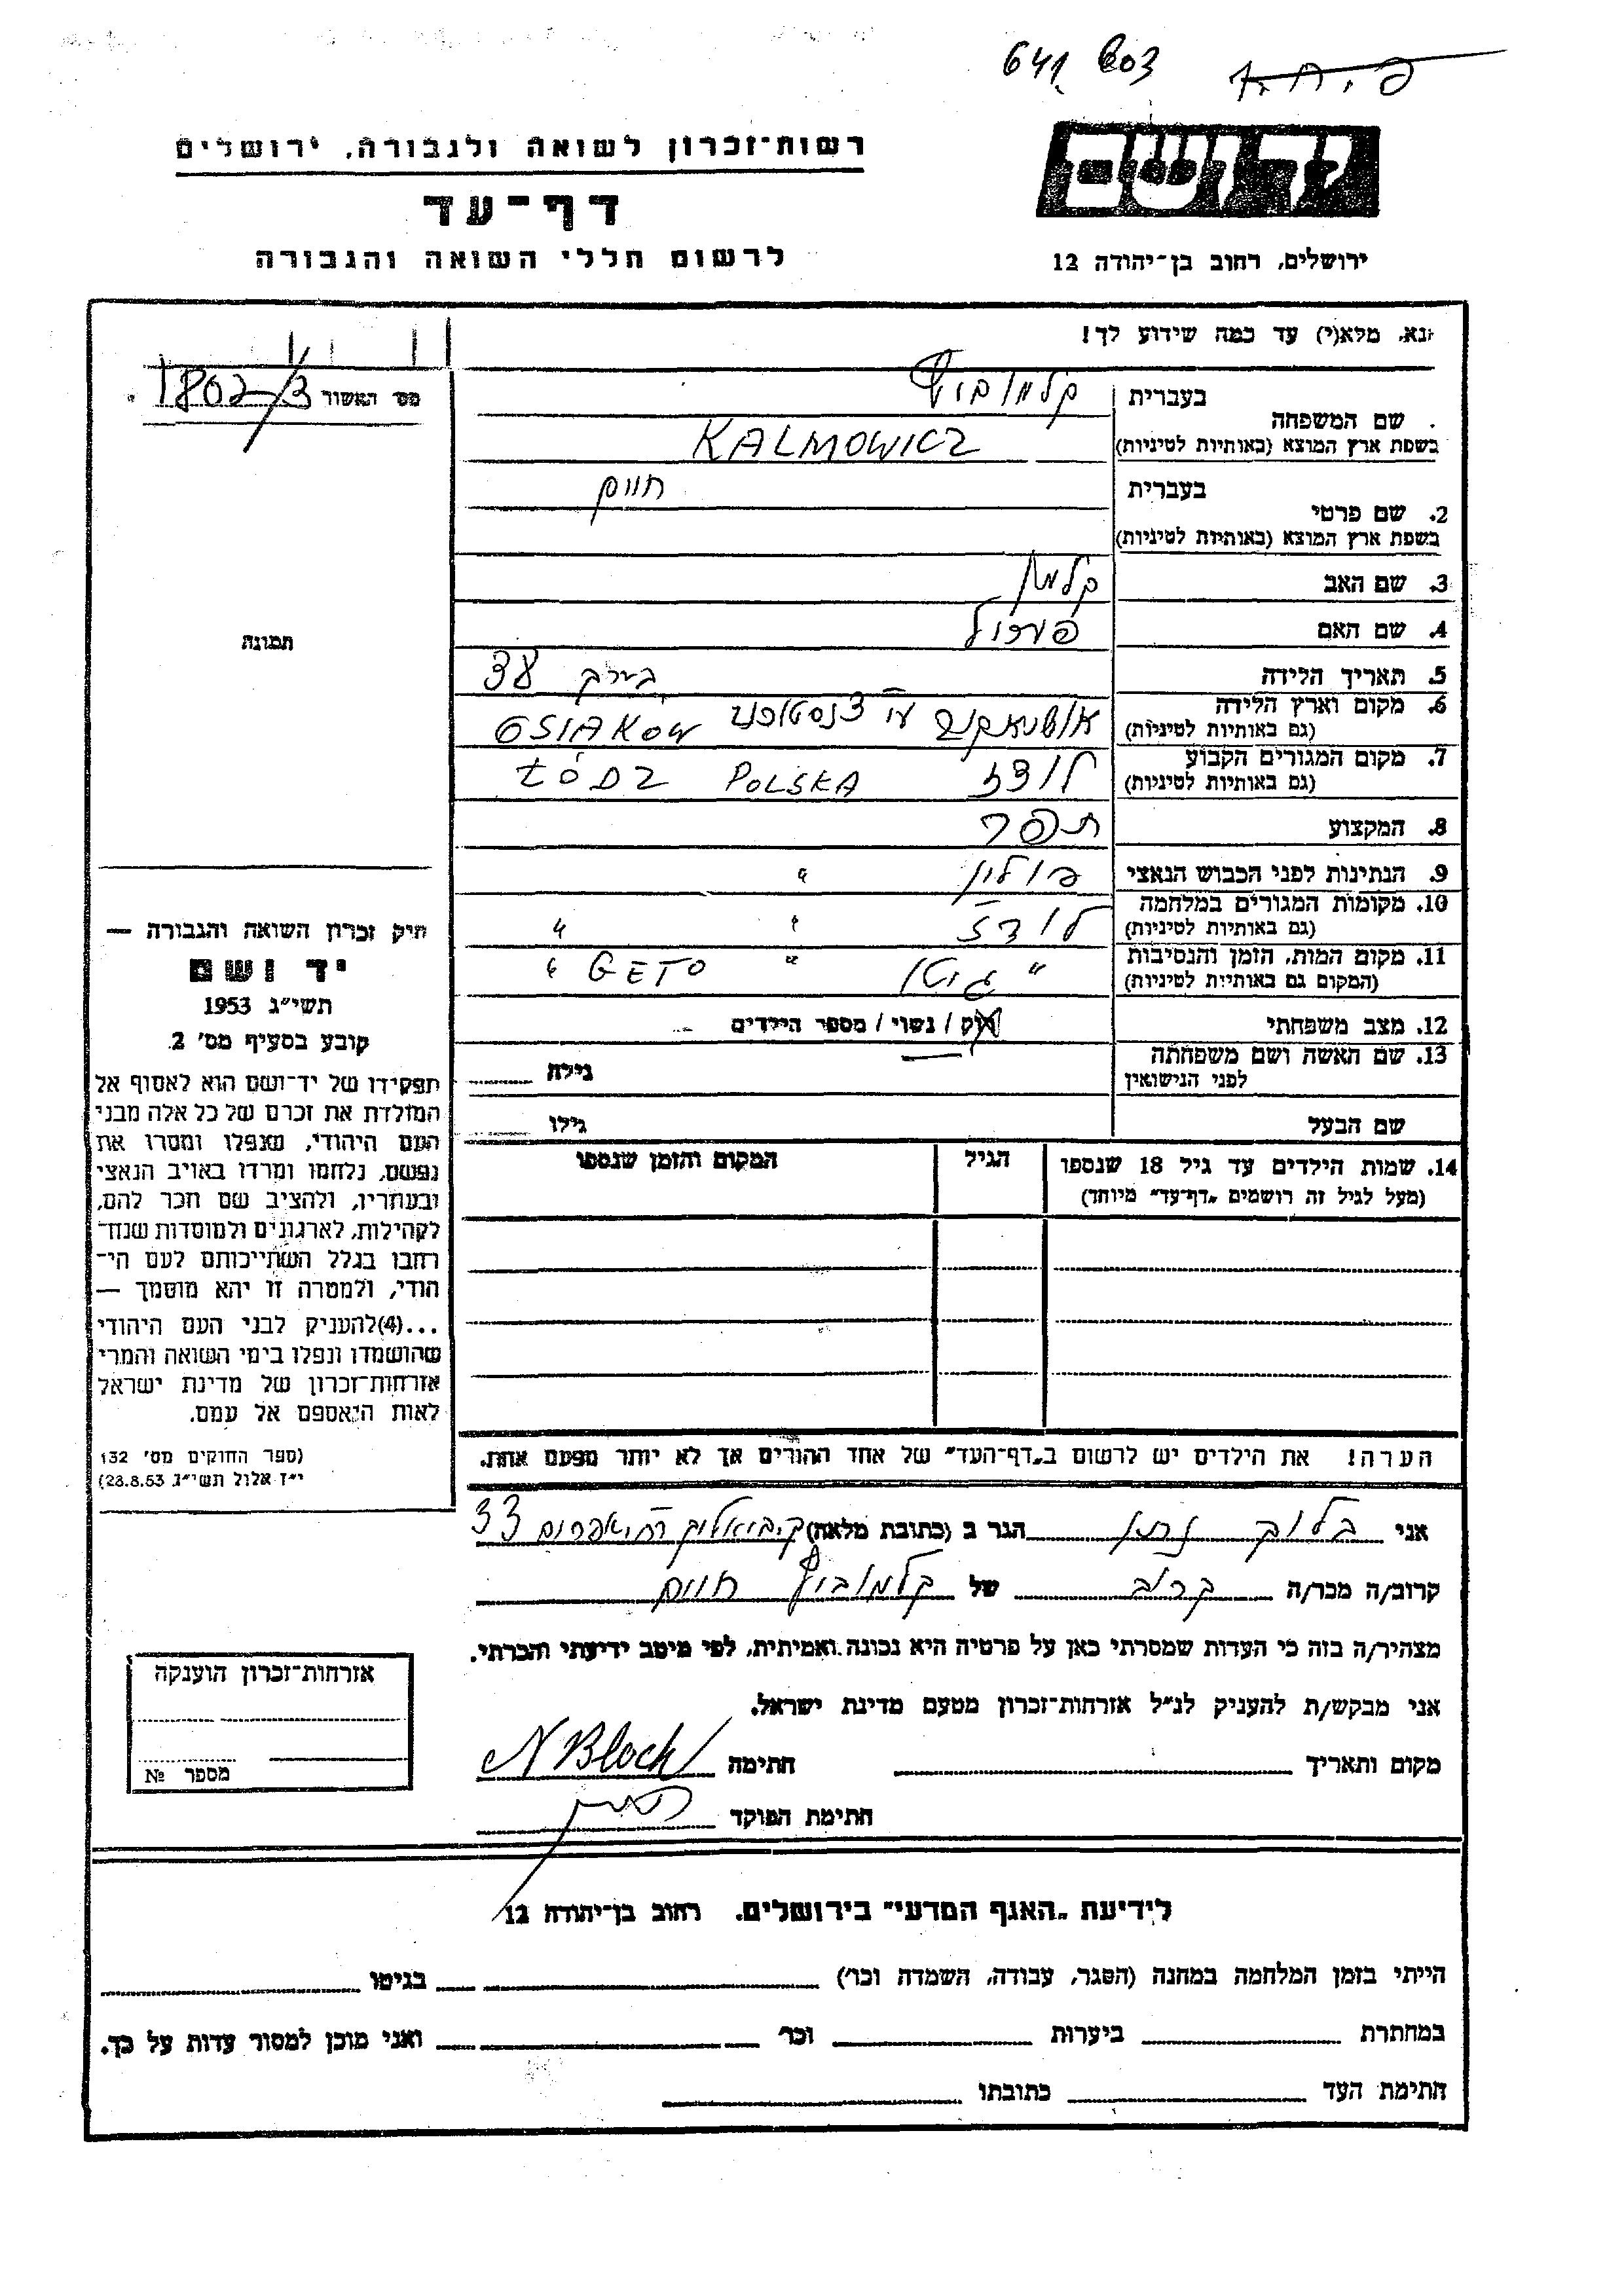 641 803
רשות־זכרון לשואה ולגבורה, ירושלים
דף־עד
לרשום חללי השואה והגבורה
יד ושם
ירושלים, רחוב בן־יהודה 12
נא, מלא(י) עד כמה שידוע לך!
מס האשור 1802/3
שם המשפחה
בעברית קלמוביץ
בשפת ארץ המוצא (באותיות לטיניות) KALMOWICZ
2. שם פרטי
בעברית חיים
בשפת ארץ המוצא (באותיות לטיניות)
3. שם האב קלמן
4. שם האם
5. תאריך הלידה בערך 34
6. מקום וארץ הלידה
(גם באותיות לטיניות) OSIAKÓW
7. מקום המגורים הקבוע
(גם באותיות לטיניות) לודז POLSKA ŁÓDZ
8. המקצוע תפר
9. הנתינות לפני הכבוש הנאצי פולין "
10. מקומות המגורים במלחמה
(גם באותיות לטיניות) לודז " "
11. מקום המות, הזמן והנסיבות
(המקום גם באותיות לטיניות) " גיטו " GETO "
12. מצב משפחתי רוק / נשוי / מספר הילדים
13. שם האשה ושם משפחתה
לפני הנישואין
גילה
שם הבעל
גילו
14. שמות הילדים עד גיל 18 שנספו
(מעל לגיל זה רושמים „דף־עד" מיוחד)
הגיל
המקום והזמן שנספו
הערה! את הילדים יש לרשום ב„דף־העד" של אחד ההורים אך לא יותר מפעם אחת.
תמונה
חיק זכרון השואה והגבורה —
יד ושם
תשי"ג 1953
קובע בסעיף מס' 2
תפקידו של יד־ושם הוא לאסוף אל
המולדת את זכרם של כל אלה מבני
העם היהודי, שנפלו ומסרו את
נפשם, נלחמו ומרדו באויב הנאצי
ובעוזריו, ולהציב שם וזכר להם,
לקהילות, לארגונים ולמוסדות שנח־
רבו בגלל השתייכותם לעם הי־
הודי, ולמטרה זו יהא מוסמך —
...(4)להעניק לבני העם היהודי
שהושמדו ונפלו בימי השואה והמרי
אזרחות־זכרון של מדינת ישראל
לאות היאספם אל עמם.
(ספר החוקים מס' 132
י"ז אלול תשי"ג 28.8.53)
אני בלוך נתן הגר ב (כתובת מלאה) 33
קרוב/ה מכר/ה קרוב של קלמוביץ חיים
מצהיר/ה בזה כי העדות שמסרתי כאן על פרטיה היא נכונה ואמיתית, לפי מיטב ידיעתי והכרתי.
אני מבקש/ת להעניק לנ"ל אזרחות־זכרון מטעם מדינת ישראל.
מקום ותאריך חתימה N Bloch
חתימת הפוקד
אזרחות־זכרון הוענקה
מספר №
לידיעת „האגף המדעי" בירושלים. רחוב בן־יהודה 12
הייתי בזמן המלחמה במחנה (הסגר, עבודה, השמדה וכו') בגיטו
במחתרת ביערות וכו' ואני מוכן למסור עדות על כך.
חתימת העד כתובתו